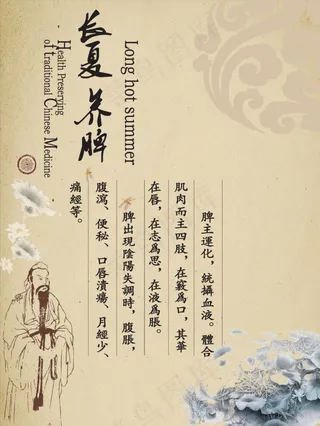 长夏养脾
Long hot summer
Health Preserving
of traditional Chinese Medicine
脾主運化，統攝血液。體合
肌肉而主四肢，在竅爲口，其華
在唇，在志爲思，在液爲脹。
脾出現陰陽失調時，腹脹，
腹瀉、便秘、口唇潰瘍、月經少、
痛經等。